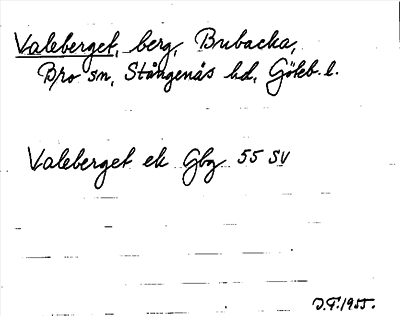 Valeberget, berg, Brubacka,
Bro sn, Stångenäs hd, Göteb. l.
Valeberget ek Gbg 55 SV
J.F. 1955.